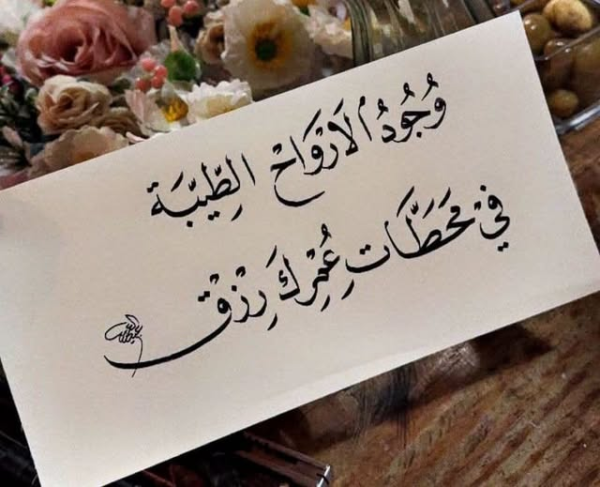 وُجُودُ الأَرْوَاحْ الطِّيبَة
فيْ مَحَطَّاتِ عُمْرِكَ رِزْق